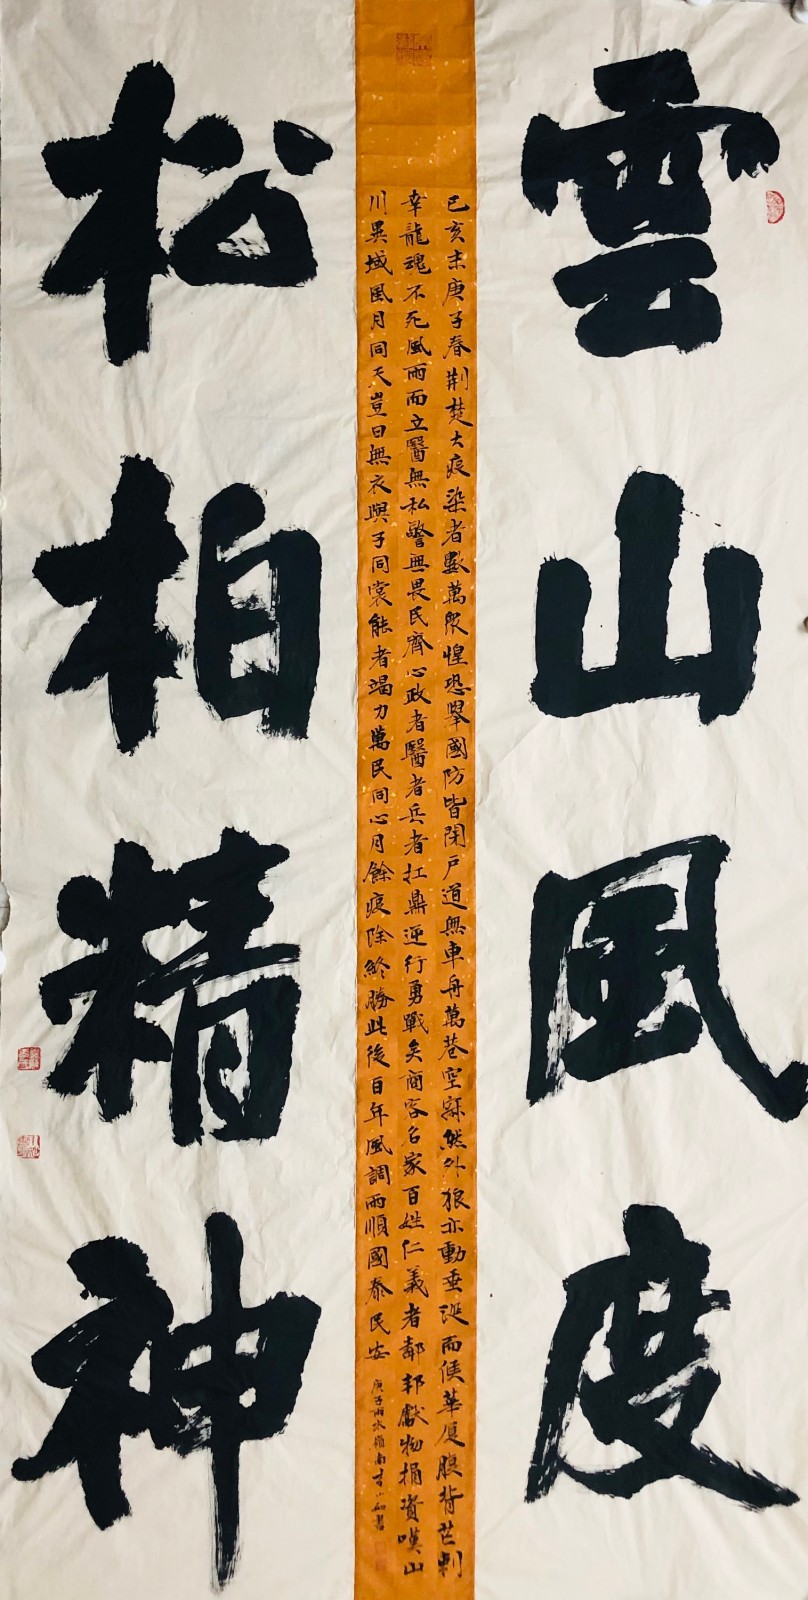 雲山風度
己亥末庚子春荆楚大疫染者數萬眾惶恐舉國防皆閉戶道無車舟萬巷空寂然外狼亦動垂涎而候華厦腹背芒刺
幸龍魂不死風雨而立醫無私警無畏民齊心政者醫者兵者扛鼎逆行勇戰矣商客名家百姓仁義者鄰邦獻物捐資嘆山
川異域風月同天豈曰無衣與子同裳能者竭力萬民同心月餘疫除終勝此後百年風調雨順國泰民安
庚子雨水嶺南
松柏精神